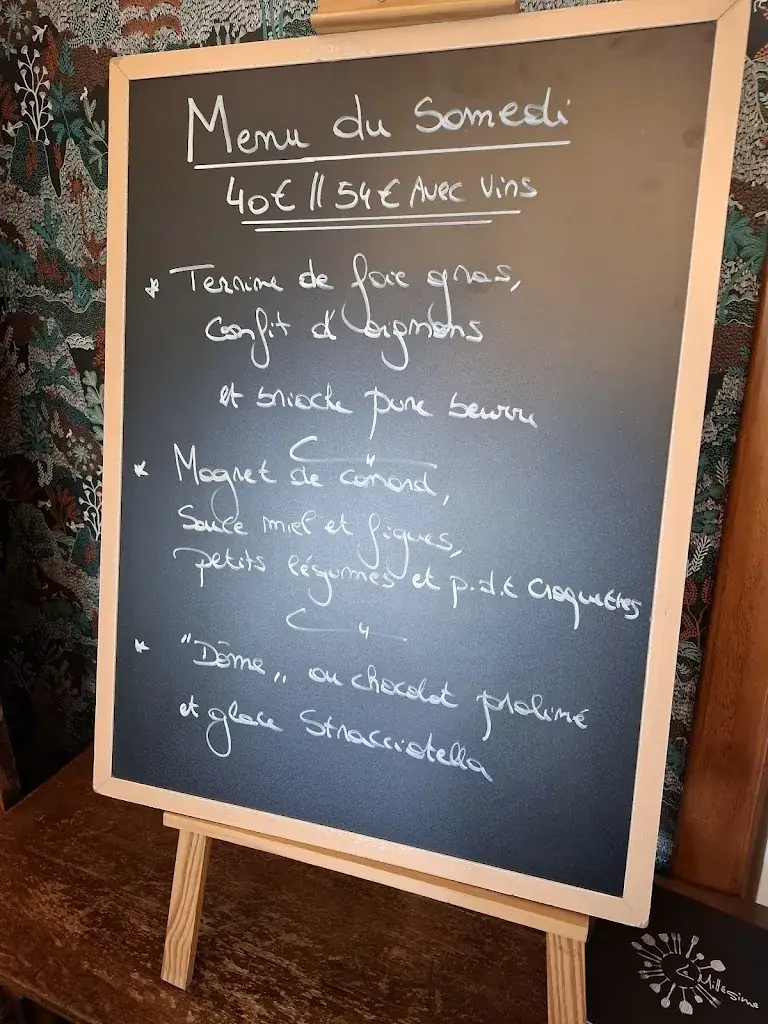 Menu du Samedi
40€ // 54€ Avec Vins
* Terrine de foie gras,
confit d'oignons
et brioche pure beurre
* Magret de canard,
Sauce miel et figues,
petits légumes et p.d.t croquettes
* "Dôme" au chocolat praliné
et glace Stracciatella
Le Millesime